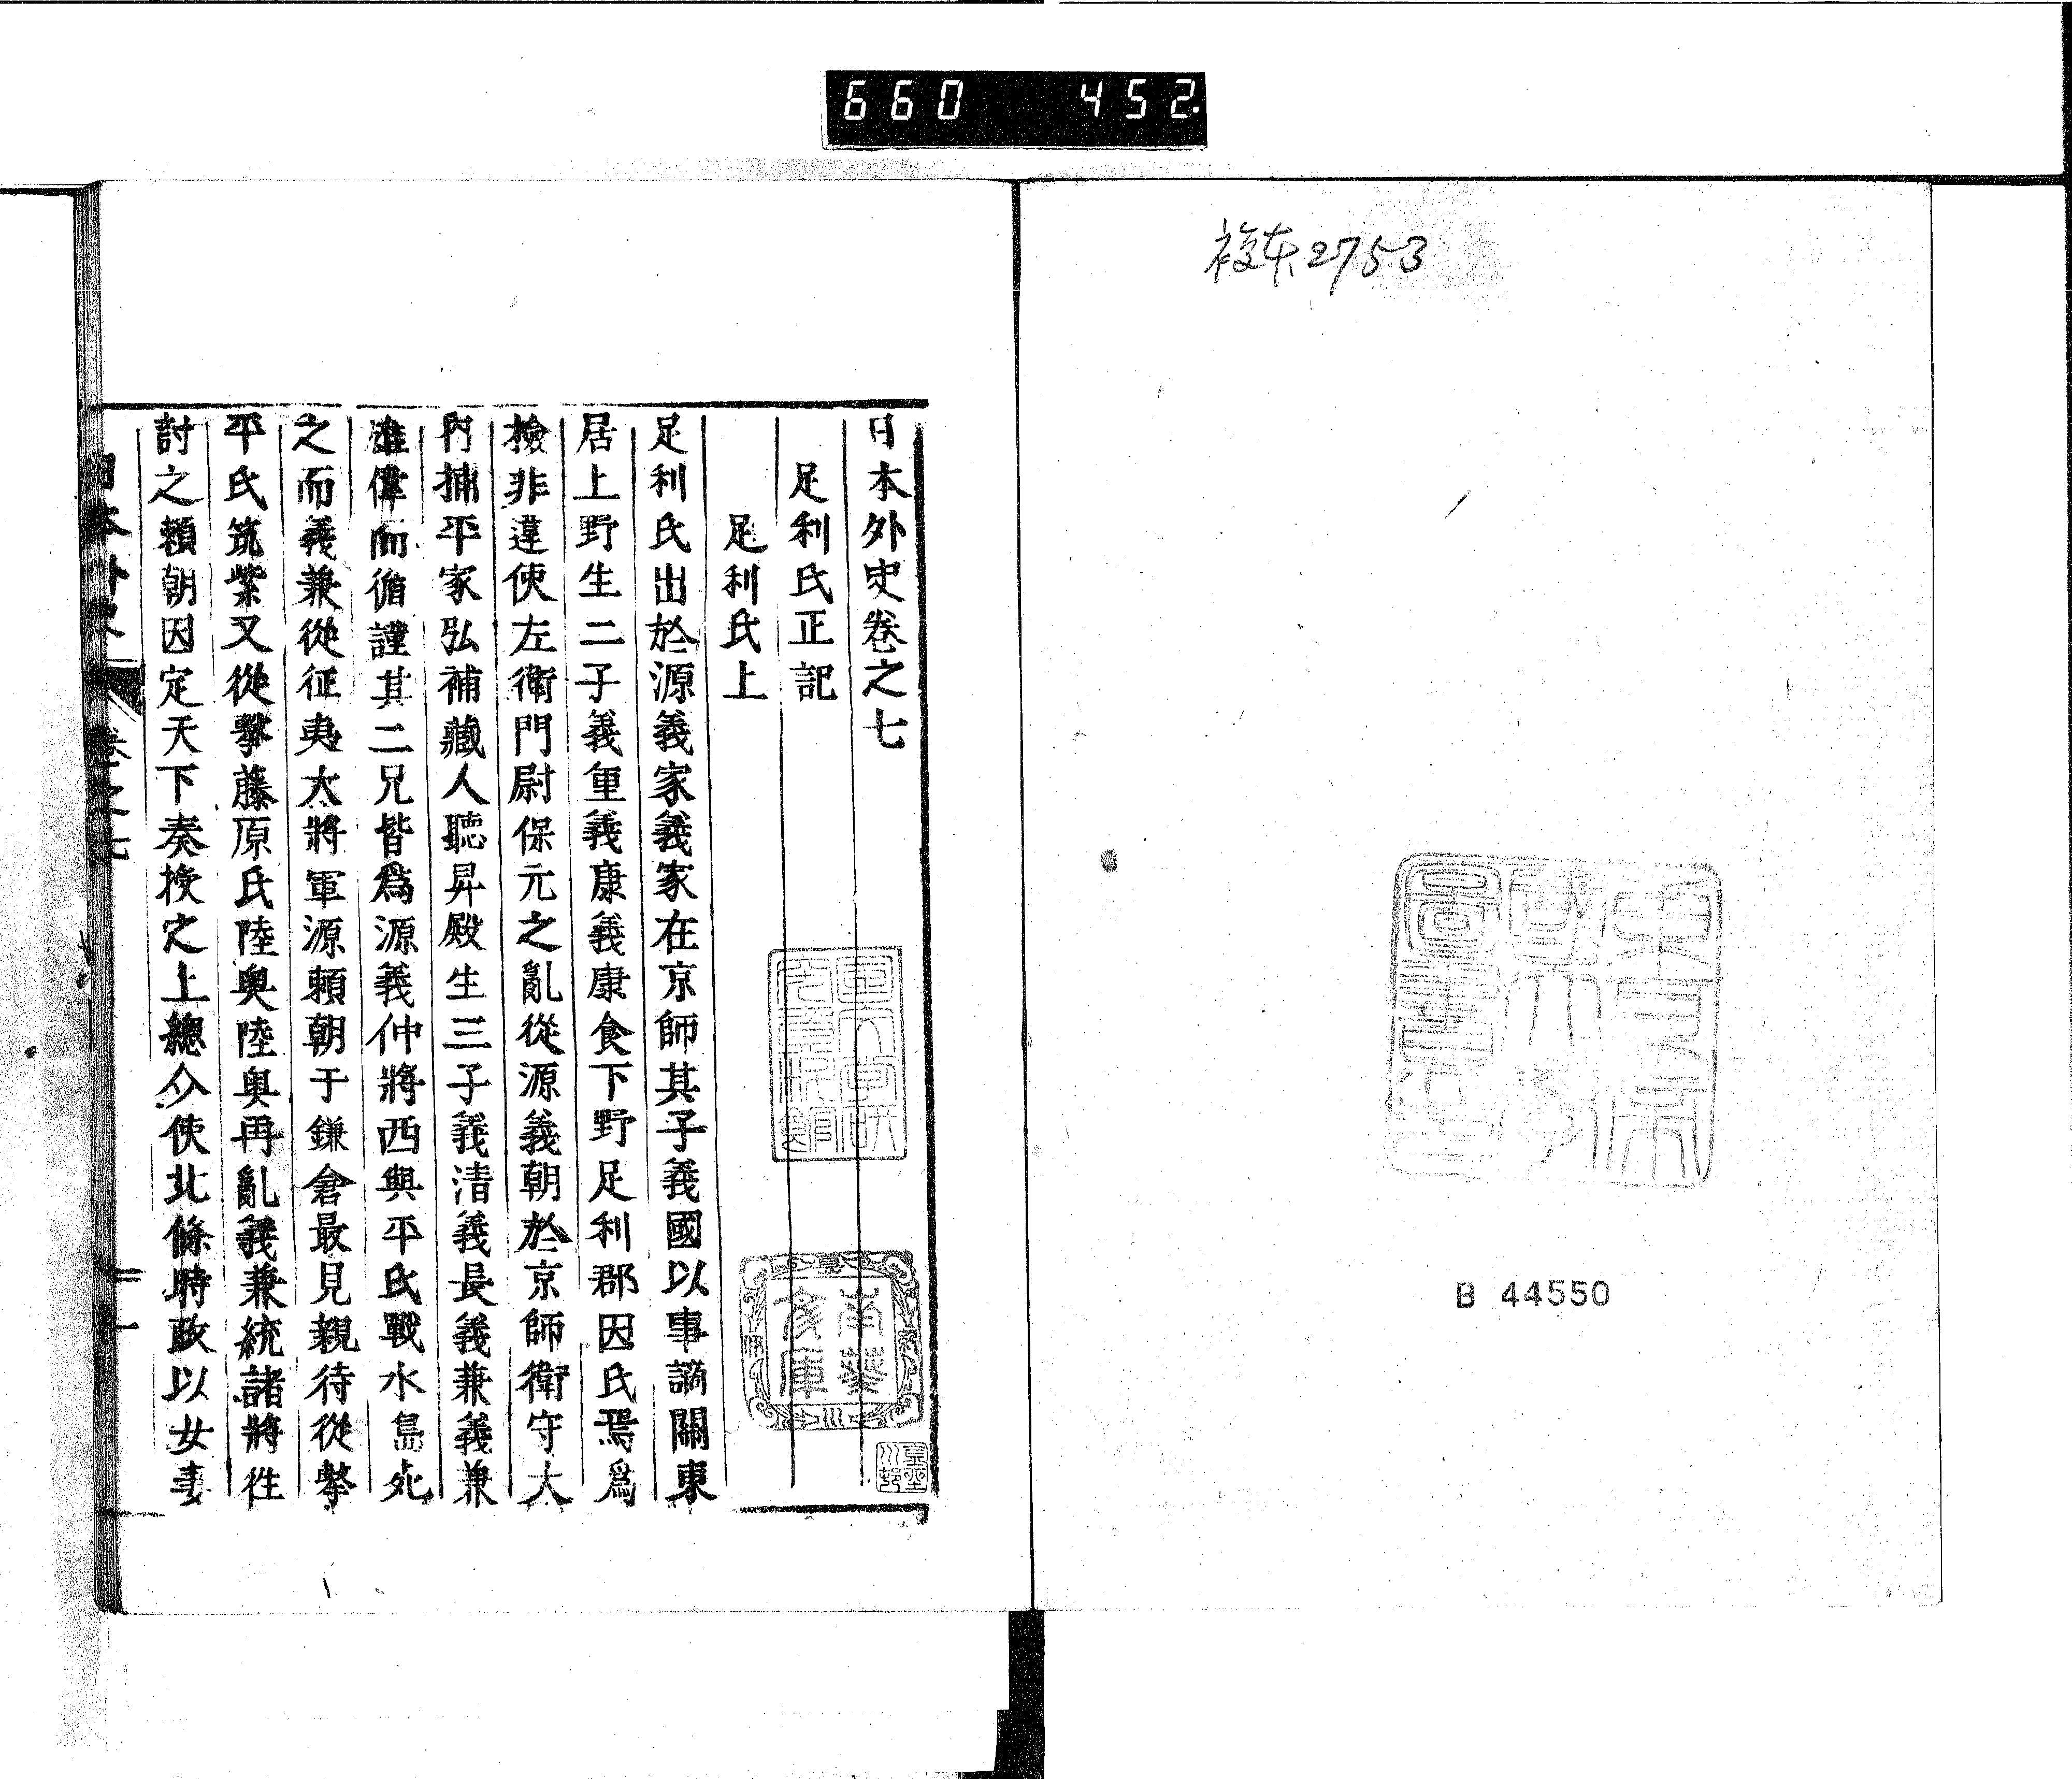 660 452
複本2753
B 44550
日本外史卷之七
足利氏正記
足利氏上
足利氏出於源義家義家在京師其子義國以事謫關東
居上野生二子義重義康義康食下野足利郡因氏焉爲
檢非違使左衞門尉保元之亂從源義朝於京師衞守大
內捕平家弘補藏人聽昇殿生三子義清義長義兼義兼
雄偉而循謹其二兄皆爲源義仲將西與平氏戰水島死
之而義兼從征夷大將軍源賴朝于鎌倉最見親待從擊
平氏筑紫又從擊藤原氏陸奧陸奧再亂義兼統諸將往
討之賴朝因定天下奏授之上總介使北條時政以女妻
日本外史 卷之七 一
南葵文庫